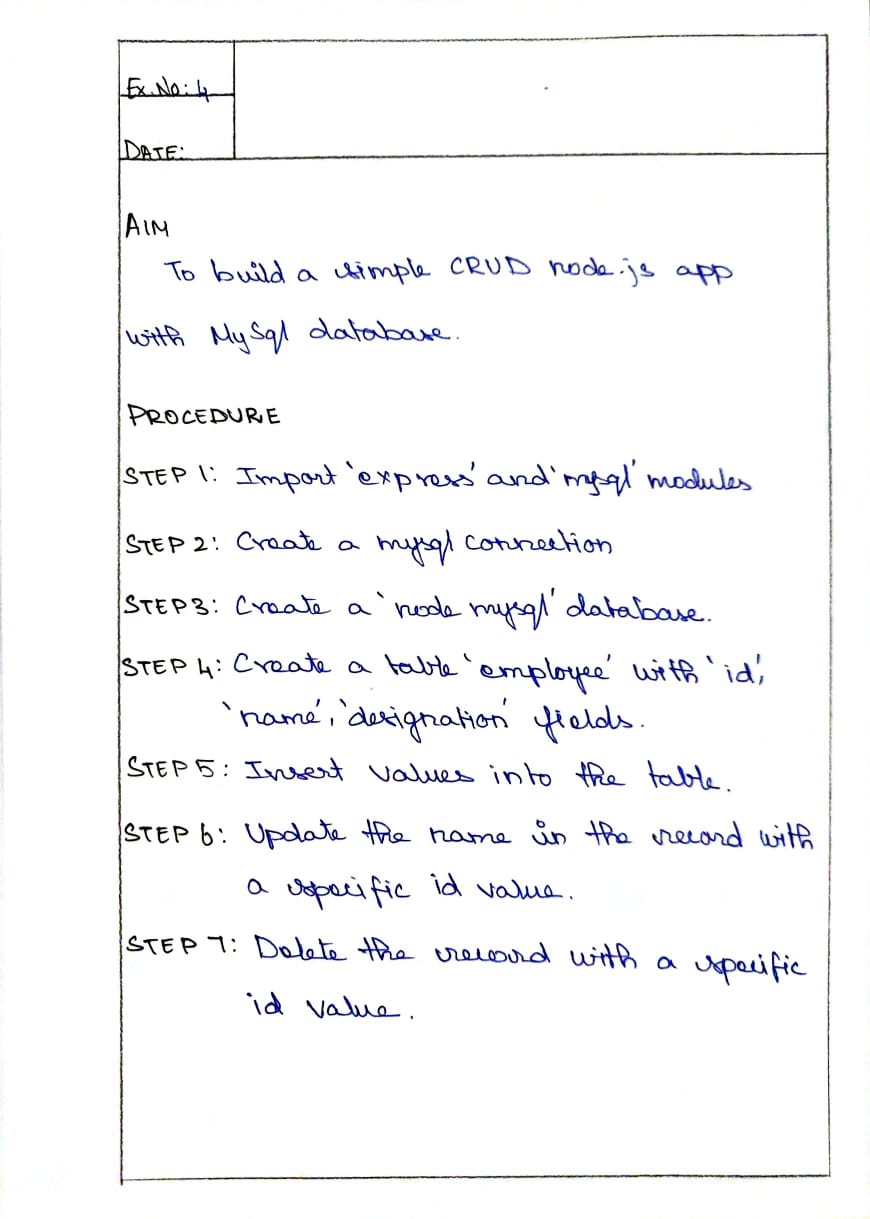 Ex.No: 4
DATE:
AIM
To build a simple CRUD node.js app
with MySql database.
PROCEDURE
STEP 1: Import 'express' and 'mysql' modules
STEP 2: Create a mysql connection
STEP 3: Create a 'node mysql' database.
STEP 4: Create a table 'employee' with 'id',
'name', 'designation' fields.
STEP 5: Insert values into the table.
STEP 6: Update the name in the record with
a specific id value.
STEP 7: Delete the record with a specific
id value.